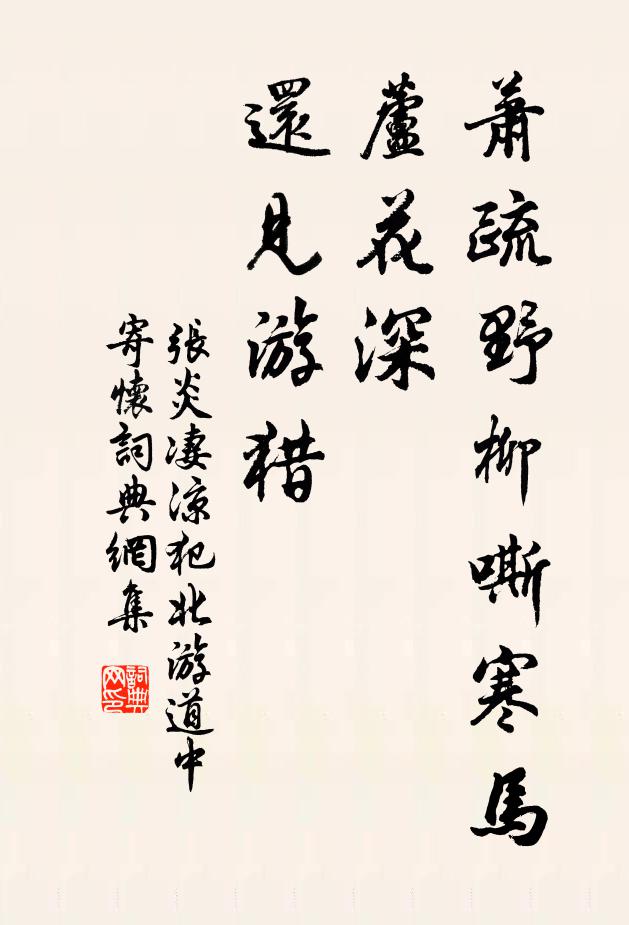 蕭疏野柳嘶寒馬
蘆花深
還見游猎
張炎凄涼犯北游道中
寄懷詞典網集
詞典
网印